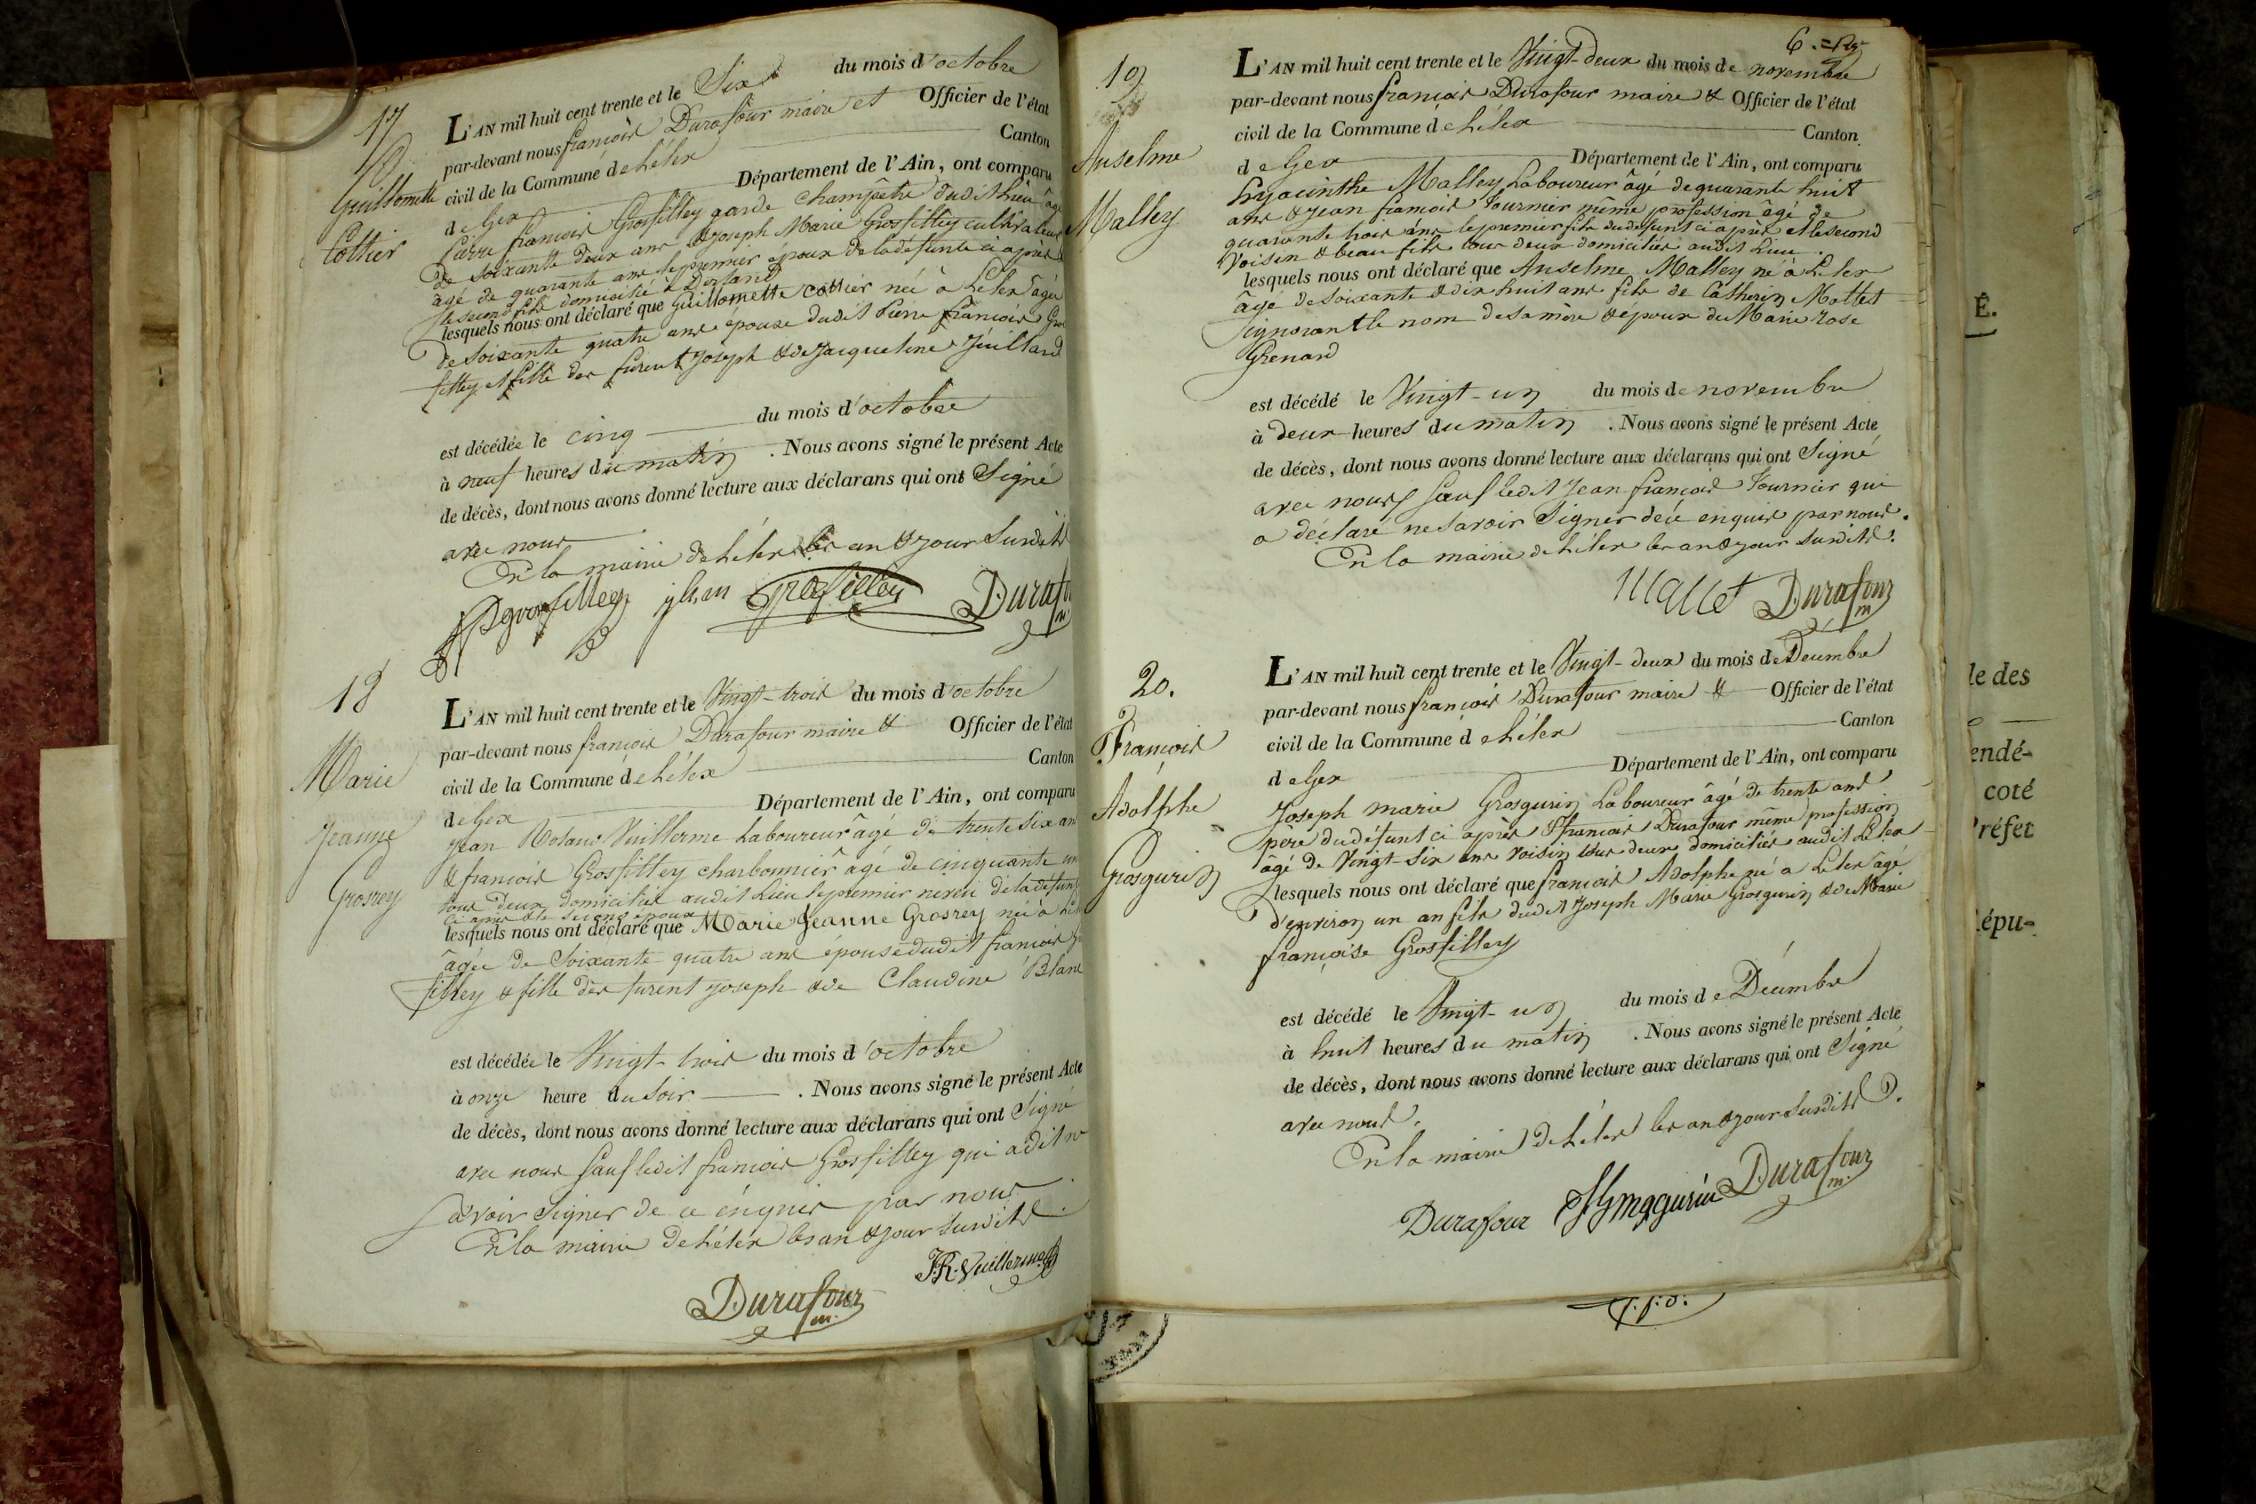 17
Guillomette
Cottier
L'AN mil huit cent trente et le Six du mois d'octobre
par-devant nous françois Durafour maire et Officier de l'état
civil de la Commune de Lélex Canton
de Gex Département de l'Ain, ont comparu
Pierre françois Grosfilley garde champêtre dudit lieu âgé
de soixante deux ans & Joseph Marie Grosfilley cultivateur
âgé de quarante ans le premier époux de la défunte ci après
le second fils domicilié à
lesquels nous ont déclaré que Guillomette Cottier née à Lélex âgée
de soixante quatre ans épouse dudit Pierre françois Gros
filley et fille des furent Joseph & de Jacqueline Juilland
est décédée le cinq du mois d'octobre
à neuf heures du matin . Nous avons signé le présent Acte
de décès, dont nous avons donné lecture aux déclarans qui ont Signé
avec nous
En la mairie de Lélex les an & jour susdits
grosfilley Grosfilley Durafour m.
18
Marie
Jeanne
Grosrey
L'AN mil huit cent trente et le Vingt-trois du mois d'octobre
par-devant nous françois Durafour maire & Officier de l'état
civil de la Commune de Lélex Canton
de Gex Département de l'Ain, ont comparu
Jean Roland Vuillerme Laboureur âgé de trente six ans
& françois Grosfilley charbonnier âgé de cinquante un
tous deux domiciliés audit Lieu le premier neveu de la défunte
ci après & le second époux
lesquels nous ont déclaré que Marie Jeanne Grosrey née à Lélex
âgée de Soixante quatre ans épouse dudit françois Gros
filley & fille des furent Joseph & de Claudine Blanc
est décédée le Vingt-trois du mois d'octobre
à onze heure du Soir . Nous avons signé le présent Acte
de décès, dont nous avons donné lecture aux déclarans qui ont Signé
avec nous sauf ledit françois Grosfilley qui a dit ne
savoir signer de ce enquis par nous
En la mairie de Lélex les an & jour susdits.
J.R. Vuillerme
Durafour m.
6.
19
Anselme
Malley
L'AN mil huit cent trente et le Vingt-deux du mois de novembre
par-devant nous françois Durafour maire & Officier de l'état
civil de la Commune de Lélex Canton
de Gex Département de l'Ain, ont comparu
hyacinthe Malley Laboureur âgé de quarante huit
ans & Jean françois Fournier même profession âgé de
quarante trois ans le premier fils du défunt ci après et le second
voisin & beau fils tous deux domiciliés audit Lieu.
lesquels nous ont déclaré que Anselme Malley né à Lélex
âgé de Soixante & dix huit ans fils de Catherin Mallet
ignorant le nom de sa mère & époux de Marie Rose
Grenard
est décédé le Vingt-un du mois de novembre
à Deux heures du matin . Nous avons signé le présent Acte
de décès, dont nous avons donné lecture aux déclarans qui ont Signé
avec nous sauf ledit Jean françois Fournier qui
a déclaré ne savoir Signer de ce enquis par nous.
En la mairie de Lélex les an & jour susdits.
Mallet Durafour m.
20.
François
Adolphe
Grosgurin
L'AN mil huit cent trente et le Vingt-deux du mois de Décembre
par-devant nous françois Durafour maire & Officier de l'état
civil de la Commune de Lélex Canton
de Gex Département de l'Ain, ont comparu
Joseph marie Grosgurin Laboureur âgé de trente ans
père du défunt ci après & françois Durafour même profession
âgé de Vingt six ans voisin tous deux domiciliés audit Lélex
lesquels nous ont déclaré que françois Adolphe né à Lélex âgé
d'environ un an fils dudit Joseph Marie Grosgurin & de Marie
françoise Grosfilley
est décédé le Vingt-un du mois de Décembre
à huit heures du matin . Nous avons signé le présent Acte
de décès, dont nous avons donné lecture aux déclarans qui ont Signé
avec nous.
En la mairie de Lélex les an & jour susdits.
Durafour Durafour m.
É.
le des
endé-
coté
réfet
épu-